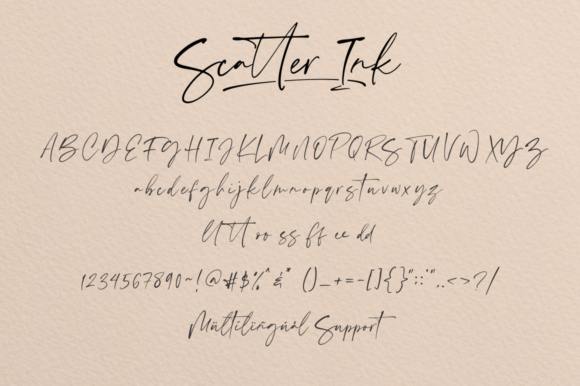 Scatter Ink
ABCDEFGHIJKLMNOPQRSTUVWXYZ
abcdefghijklmnopqrstuvwxyz
ll tt oo ss ff ee dd
1234567890~!@#$%^&* ()_+=-[]{}"::'",.<>?/
Mültilïñgúàl Support